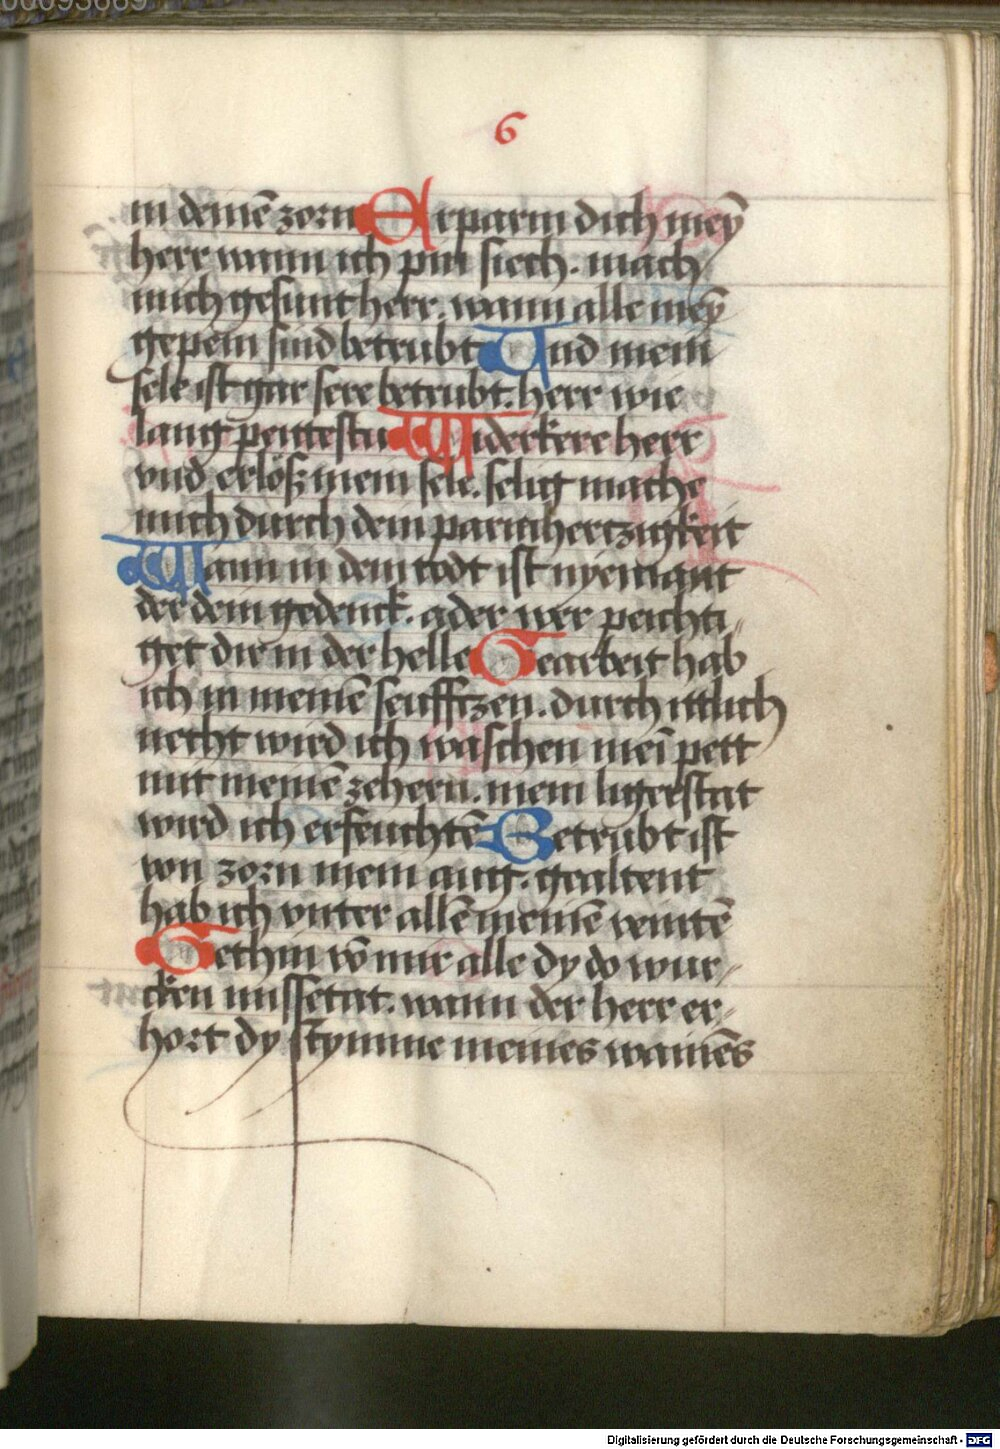 00093669
6
in deinē zorn Erparm dich meȳ
herr wann ich pin siech. mach
mich gesunt herr. wann alle meȳ
gepein sind betrubt Und mein
sele ist gar sere betrubt. herr wie
lang peitestu Widerkere herr
vnd erlös mein sele. selig mache
mich durch dein parmhertzigkeit
Wann in dem todt ist nyemant
der dein gedenck. ader wer peichti-
get dir in der helle Gearbeit hab
ich in meinē seufftzen. durch ittlich
necht wird ich waschen mei pett
mit meinē zehern. mein ligerstat
wird ich erfeuchtē Betrubt ist
von zorn mein aug. gealtent
hab ich vnter allē meinē veintē
Gethin vō mir alle dy do wur-
cken missetat. wann der herr er-
hort dy stymme meines wainēs
Digitalisierung gefördert durch die Deutsche Forschungsgemeinschaft - DFG